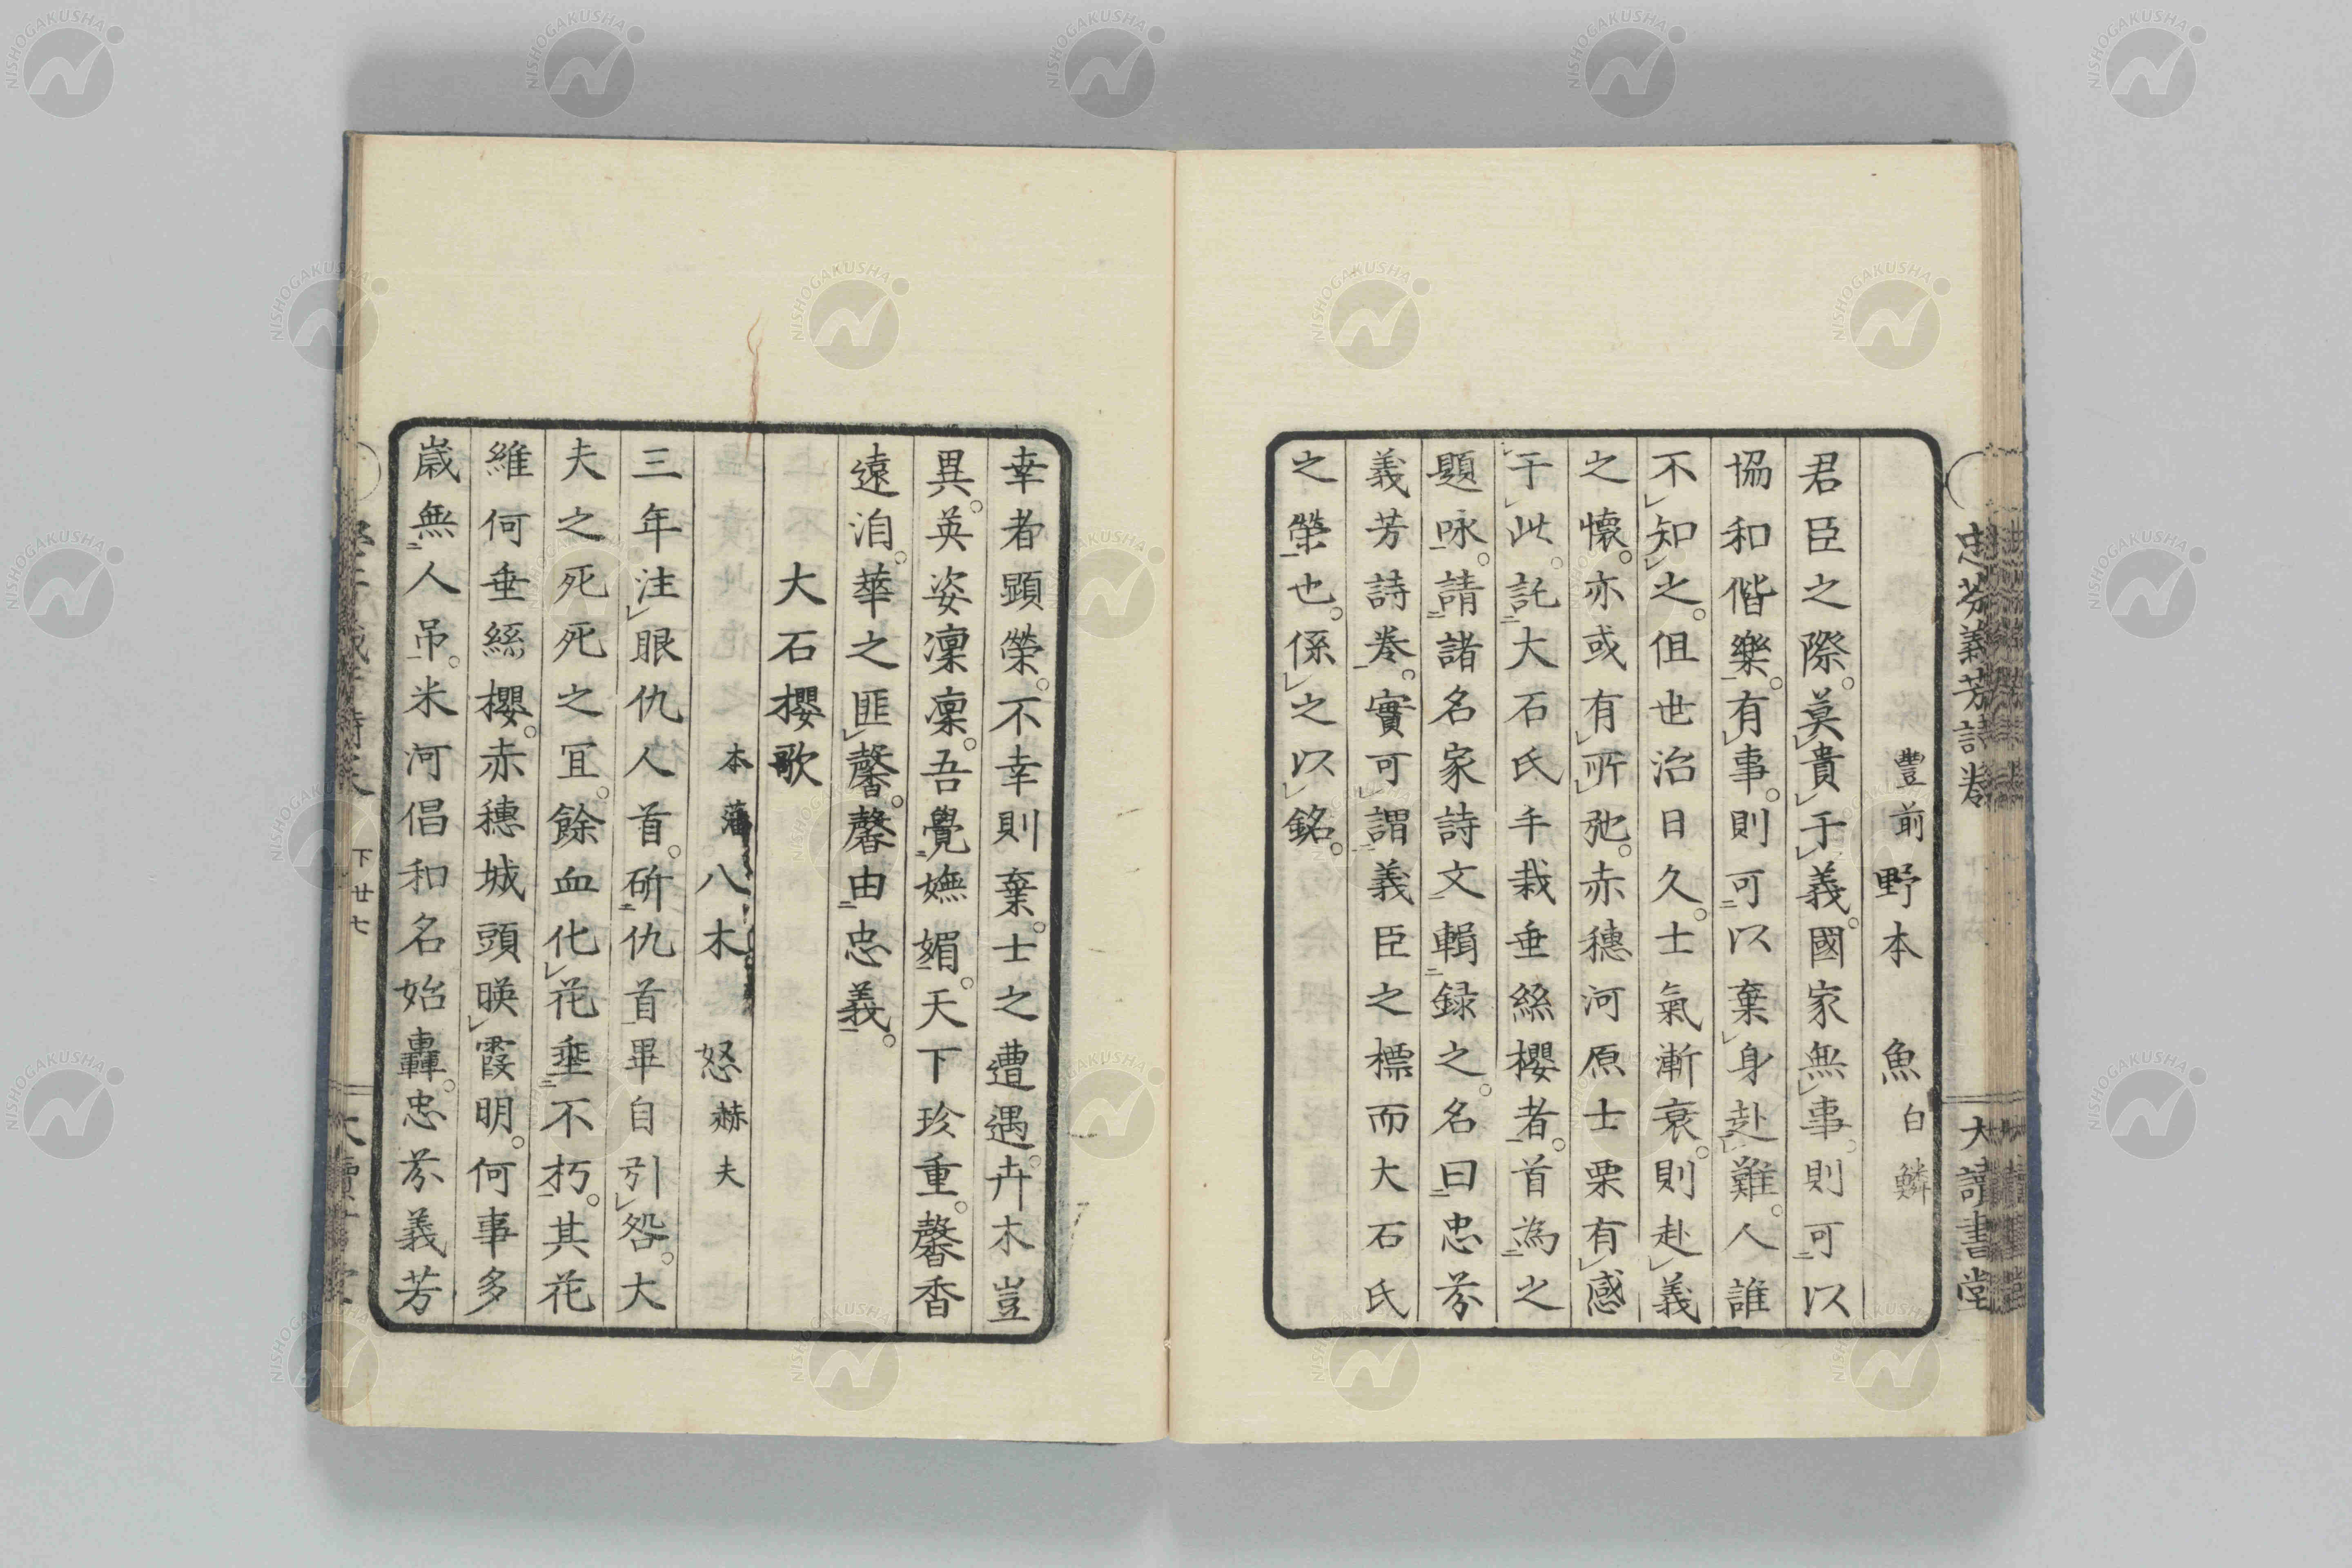 忠芬義芳詩巻
大讀書堂
豐前野本 魚 白鱗
君臣之際。莫貴于義。國家無事。則可以
協和偕樂。有事。則可以棄身赴難。人誰
不知之。但世治日久。士氣漸衰。則赴義
之懷。亦或有所弛。赤穗河原士栗有感
于此。託大石氏手栽垂絲櫻者。首為之
題咏。請諸名家詩文輯録之。名曰忠芬
義芳詩巻。實可謂義臣之標而大石氏
之榮也。係之以銘。
幸者顕榮。不幸則棄。士之遭遇。卉木豈
異。英姿凜凜。吾覺嫵媚。天下珍重。馨香
遠洎。華之匪馨。馨由忠義。
大石櫻歌
本藩八木 怒 赫夫
三年注眼仇人首。斫仇首畢自引咎。大
夫之死死之冝。餘血化花垂不朽。其花
維何垂絲櫻。赤穗城頭暎霞明。何事多
歳無人吊。米河倡和名始轟。忠芬義芳
下廿七
NISHOGAKUSHA